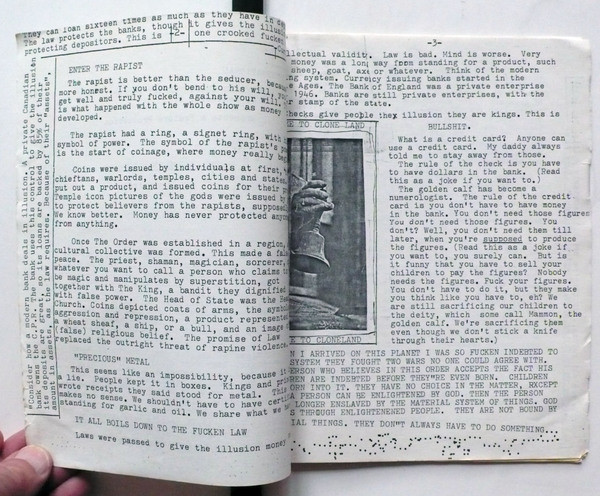 They can loan sixteen times as much as they have in
The law protects the banks, though it gives the
protecting depositors. This is -2- one crooked
Consider how a modern bank deals in illusion. A private Canadian
bank owns the C.P.R. The bank uses this control to give the illusion
its assets are great, so its loans are backed by 85% of their
amount in assets, as the law requires. Because of their "assets".
ENTER THE RAPIST
The rapist is better than the seducer,
more honest. If you don't bend to his will,
get well and truly fucked, against your will,
is what happened with the whole show as money
developed.
The rapist had a ring, a signet ring, with
symbol of power. The symbol of the rapist's
is the start of coinage, where money really
Coins were issued by individuals at first,
chieftans, warlords, temples, cities and
put out a product, and issued coins for their
Temple icon pictures of the gods were issued
to protect believers from the rapists,
We know better. Money has never protected
from anything.
Once The Order was established in a region,
cultural collective was formed. This made a
peace. The priest, shaman, magician, sorcerer,
whatever you want to call a person who claims
be magic and manipulates by superstition, got
together with The King, a bandit they dignified
with false power. The Head of State was the
Church. Coins depicted coats of arms, the
aggression and repression, a product
a wheat sheaf, a ship, or a bull, and an image
(false) religious belief. The promise of Law
replaced the outright threat of rapine violence.
"PRECIOUS" METAL
This seems like an impossibility, because it
a lie. People kept it in boxes. Kings and
wrote receipts they said stood for metal. This
makes no sense. We shouldn't have to have
standing for garlic and oil. We share what we
IT ALL BOILS DOWN TO THE FUCKEN LAW
Laws were passed to give the illusion money
-3-
intellectual validity. Law is bad. Mind is worse. Very
money was a long way from standing for a product, such
sheep, goat, axe or whatever. Think of the modern
system. Currency issuing banks started in the
Ages. The Bank of England was a private enterprise
1946. Banks are still private enterprises, with the
stamp of the state.
checks give people the illusion they are kings. This is
TO CLONE LAND
TO CLONELAND
BULLSHIT.
What is a credit card? Anyone can
use a credit card. My daddy always
told me to stay away from those.
The rule of the check is you have
to have dollars in the bank. (Read
this as a joke if you want to.)
The golden calf has become a
numerologist. The rule of the credit
card is you don't have to have money
in the bank. You don't need those figures
You don't need those figures. You
don't? Well, you don't need them till
later, when you're supposed to produce
the figures. (Read this as a joke if
you want to, you surely can. But is
it funny that you have to sell your
children to pay the figures? Nobody
needs the figures. Fuck your figures.
You don't have to do it, but they make
you think like you have to, eh? We
are still sacrificing our children to
the deity, which some call Mammon, the
golden calf. We're sacrificing them
even though we don't stick a knife
through their hearts.)
I ARRIVED ON THIS PLANET I WAS SO FUCKEN INDEBTED TO
SYSTEM THEY FOUGHT TWO WARS NO ONE COULD AGREE WITH.
PERSON WHO BELIEVES IN THIS ORDER ACCEPTS THE FACT HIS
ARE INDEBTED BEFORE THEY'RE EVEN BORN. CHILDREN
BORN INTO IT. THEY HAVE NO CHOICE IN THE MATTER, EXCEPT
PERSON CAN BE ENLIGHTENED BY GOD. THEN THE PERSON
LONGER ENSLAVED BY THE MATERIAL SYSTEM OF THINGS. GOD
THROUGH ENLIGHTENED PEOPLE. THEY ARE NOT BOUND BY
THINGS. THEY DON'T ALWAYS HAVE TO DO SOMETHING.